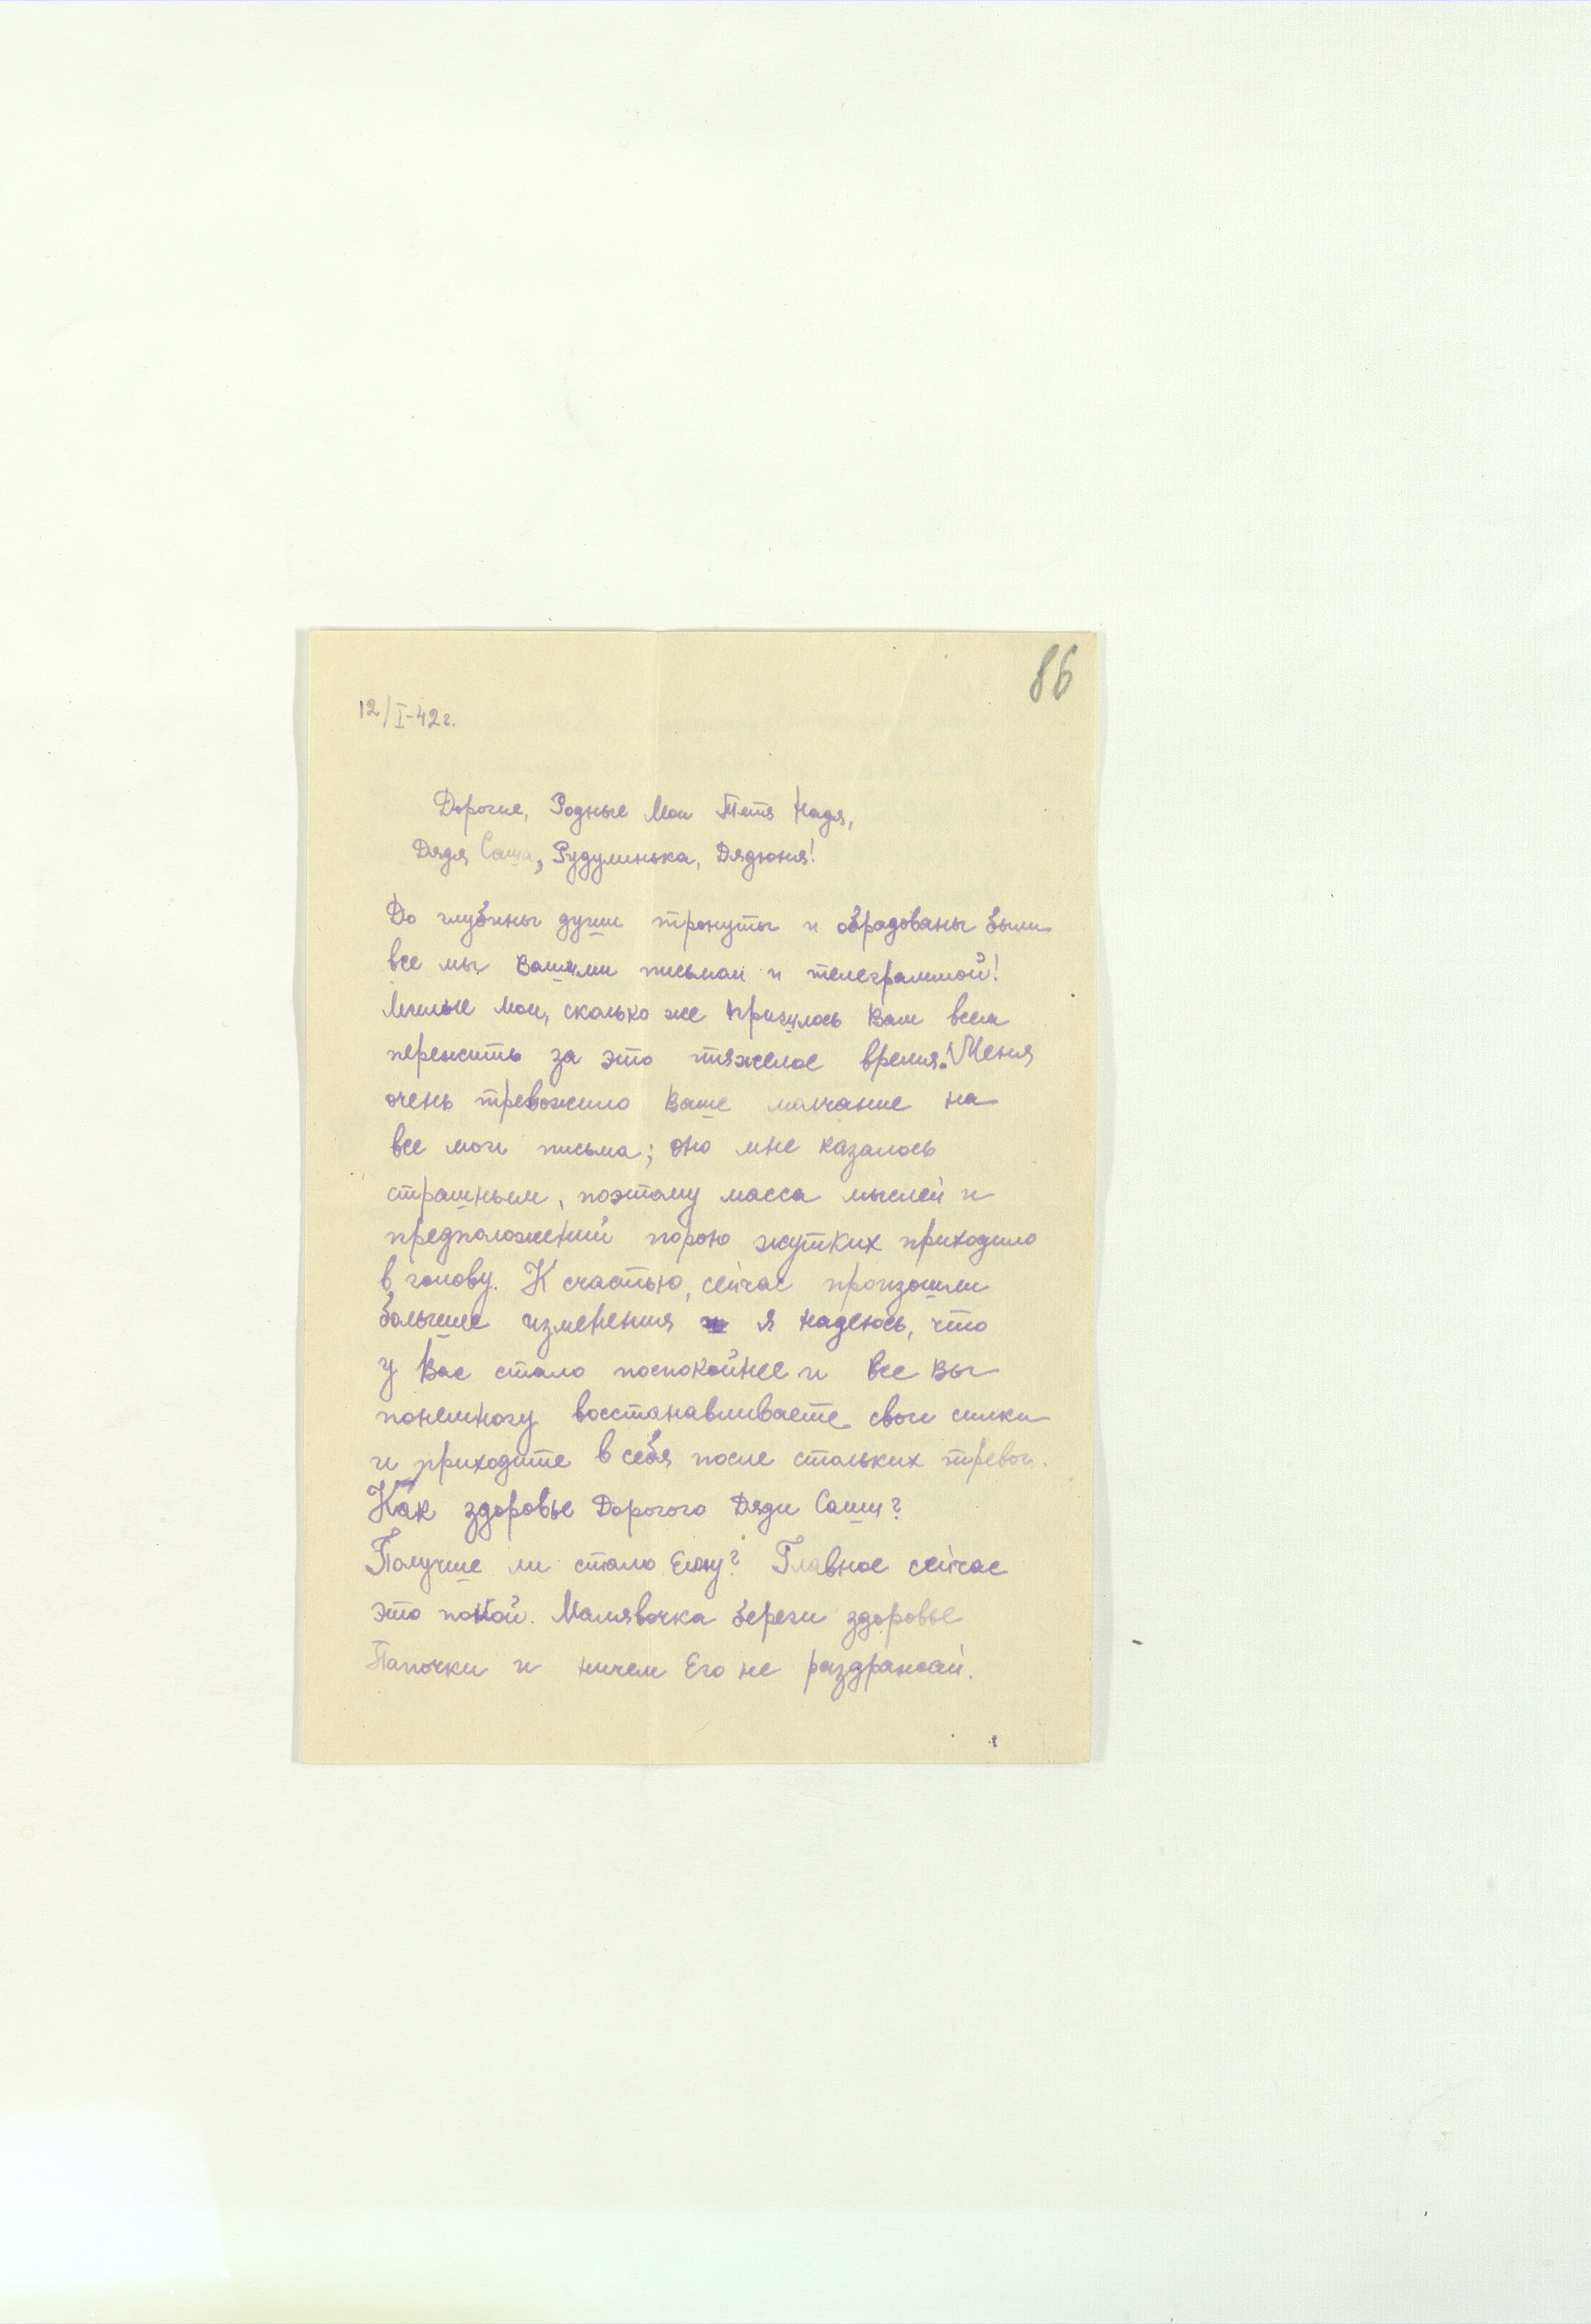 86
12/I-42г.
Дорогие, Родные Мои Тетя Надя,
Дядя Саша, Рудулинька, Дядюня!
До глубины души тронуты и обрадованы были
все мы Вашими письмом и телеграммой!
Милые мои, сколько же пришлось Вам всем
пережить за это тяжелое время! Меня
очень тревожило Ваше молчание на
все мои письма; оно мне казалось
страшным, поэтому масса мыслей и
предположений порою жутких приходило
в голову. К счастью, сейчас произошли
большие изменения я надеюсь, что
у Вас стало поспокойнее и все Вы
понемногу восстанавливаете свои силки
и приходите в себя после стольких тревог.
Как здоровье Дорогого Дяди Саши?
Получше ли стало Ему? Главное сейчас
это покой. Малявочка береги здоровье
Папочки и ничем Его не раздражай.